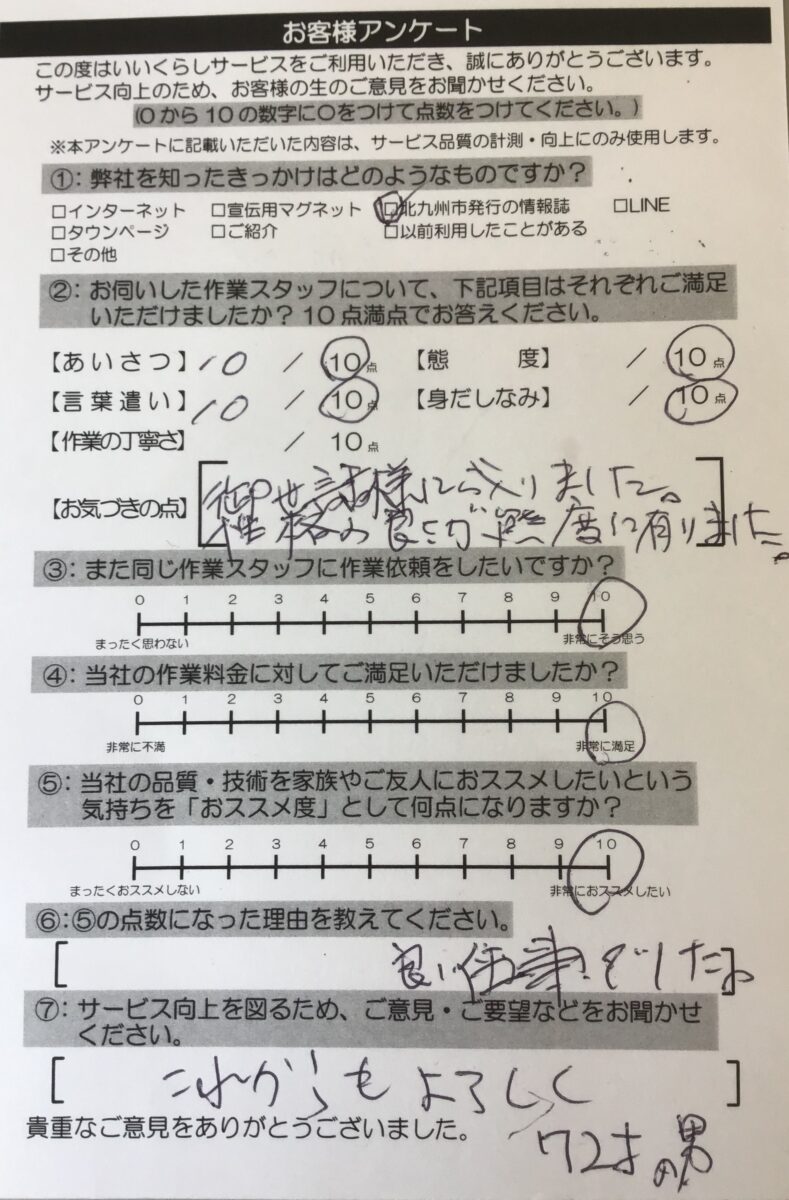 お客様アンケート
この度はいいくらしサービスをご利用いただき、誠にありがとうございます。
サービス向上のため、お客様の生のご意見をお聞かせください。
(0から10の数字に○をつけて点数をつけてください。)
※本アンケートに記載いただいた内容は、サービス品質の計測・向上にのみ使用します。
①：弊社を知ったきっかけはどのようなものですか？
□インターネット □宣伝用マグネット □北九州市発行の情報誌 □LINE
□タウンページ □ご紹介 □以前利用したことがある
□その他
②：お伺いした作業スタッフについて、下記項目はそれぞれご満足
いただけましたか？10点満点でお答えください。
【あいさつ】10 / 10点 【態度】 / 10点
【言葉遣い】10 / 10点 【身だしなみ】 / 10点
【作業の丁寧さ】 / 10点
【お気づきの点】
御世話様に成りました。
性格の良さが態度に有りました。
③：また同じ作業スタッフに作業依頼をしたいですか？
0 1 2 3 4 5 6 7 8 9 10
まったく思わない 非常にそう思う
④：当社の作業料金に対してご満足いただけましたか？
0 1 2 3 4 5 6 7 8 9 10
非常に不満 非常に満足
⑤：当社の品質・技術を家族やご友人におススメしたいという
気持ちを「おススメ度」として何点になりますか？
0 1 2 3 4 5 6 7 8 9 10
まったくおススメしない 非常におススメしたい
⑥：⑤の点数になった理由を教えてください。
[良い仕事でした。]
⑦：サービス向上を図るため、ご意見・ご要望などをお聞かせ
ください。
[これからもよろしく]
貴重なご意見をありがとうございました。
72才の男